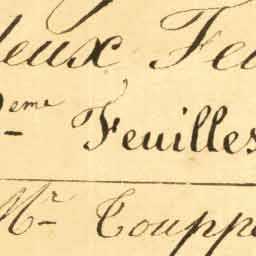 deux Fe
2eme Feuilles
Mr Coupp